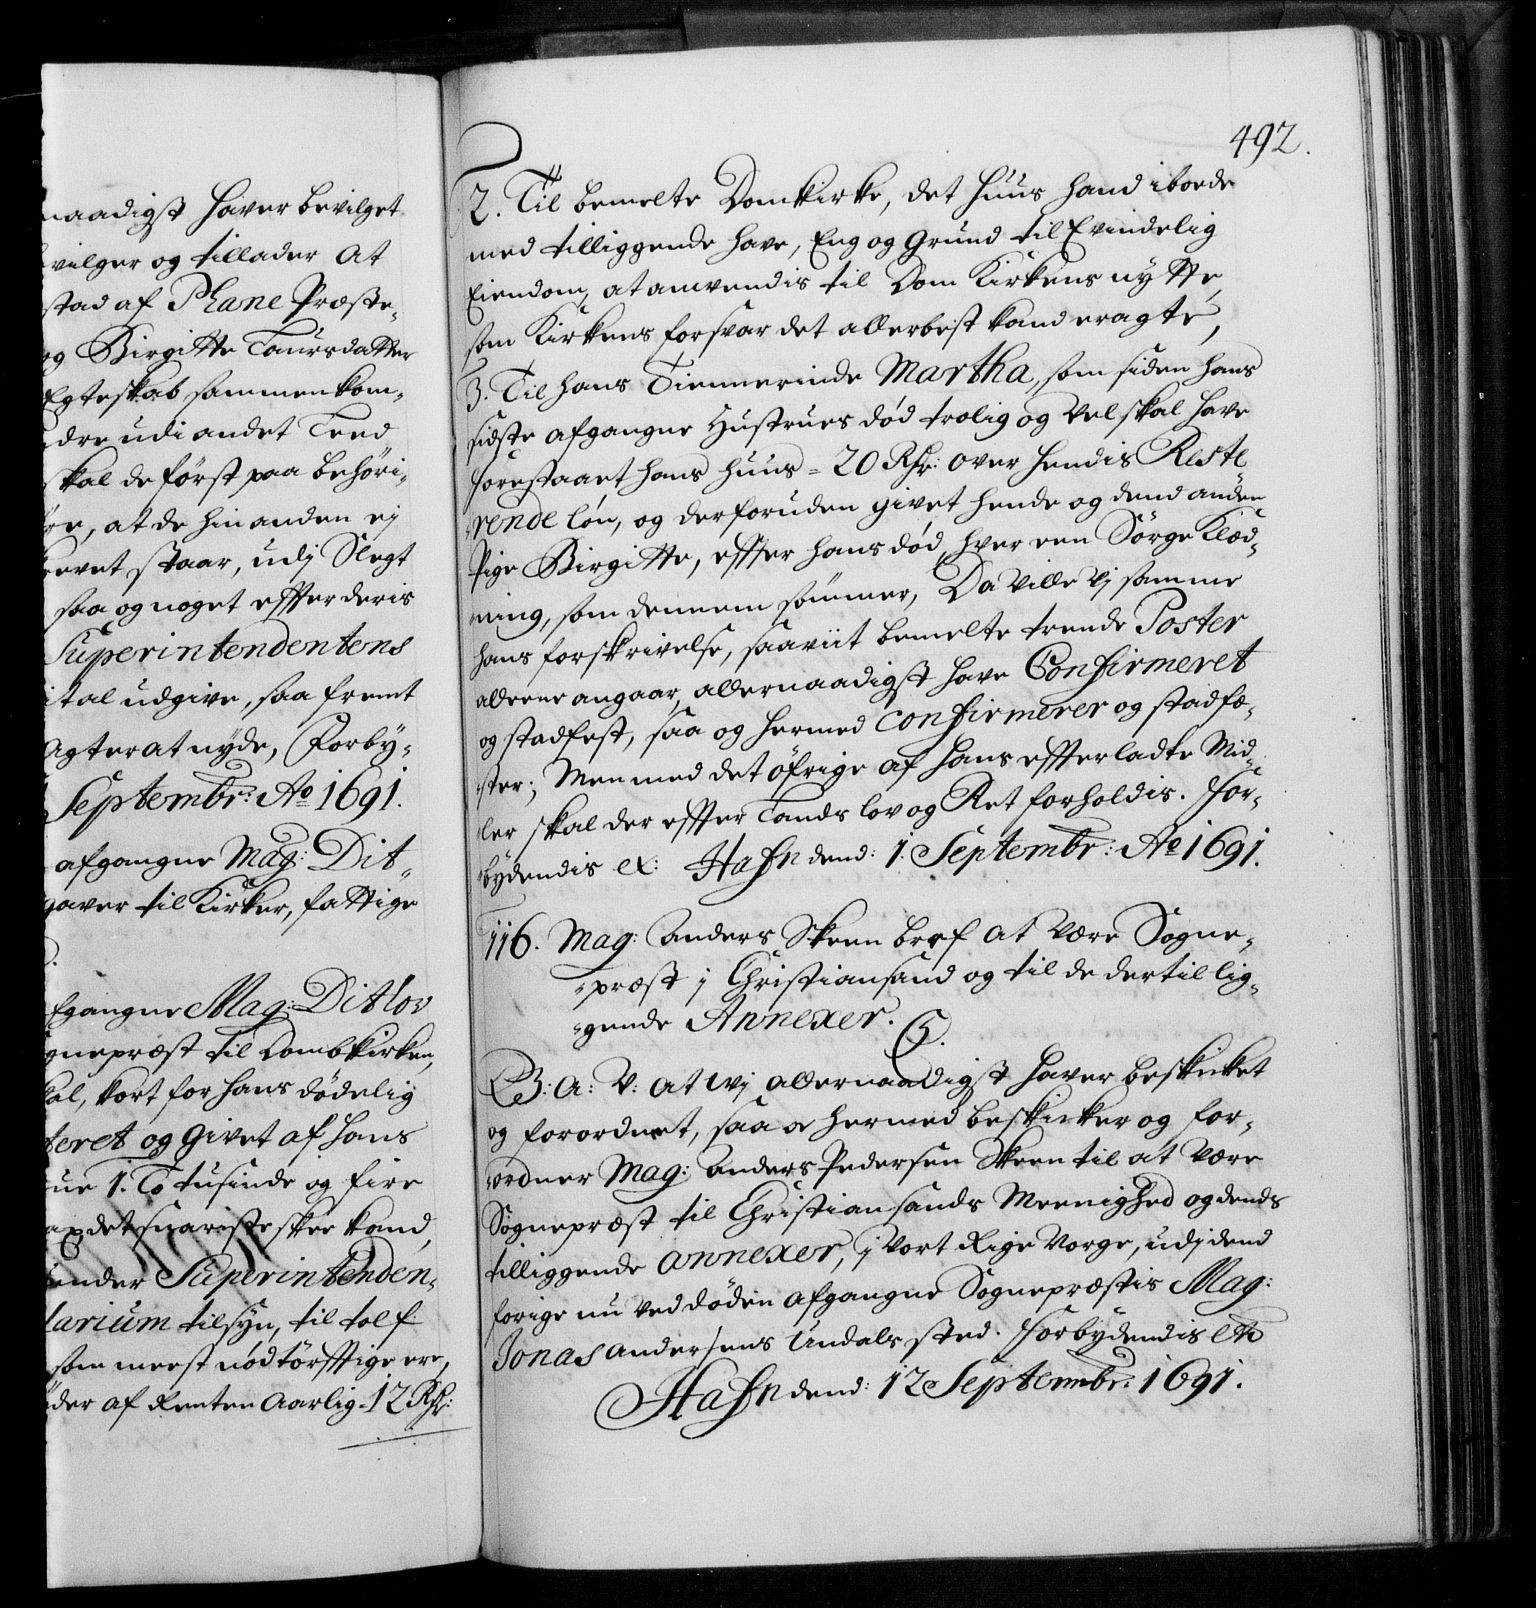 naadigst hafver bevilget
vilger og tillader at
stad af Phane Præste-
og Birgitte Laursdatter
Egteskab sammenkom-
dre udi andet Leed
skal de først paa behöri-
re, at de hinanden ej
revet staar, udj Slegt
saa og noget effter deris
Superintendentens
ital udgive, saa fremt
agter at nyde, Forby-
Septembr: Ao 1691.
afgangne Mag: Dit-
gaver til Kirker, fattige
fgangne Mag: Ditlov
gnepræst til Dombkirken,
kal, kort for hans dödelig
teret og givet af hans
ue 1. To tusinde og fire
det snareste skee kand,
under Superintenden-
tarium tilsyn, til tolf
som meest nödtörfftige ere,
der af Renten Aarlig-12 Rdr:
492.
2. Til bemelte Domkirke, det Huus hand iboede
med tilliggende have, Eng og Grund til Evindelig
Eiendom, at anvendis til Dom Kirkens nytte,
som Kirkens forsvar det allerbest kand eragte,
3. Til hans Tiennerinde Martha, som siden hans
sidste afgangne Hustrues död trolig og vel skal have
forestaaet hans Huus = 20 Rdr: over hendis Reste
rende lön, og derforuden givet hende og dend anden
Pige Birgitte, effter hans död, hver een Sörge Klæd-
ning, som dennem sömmer, Da ville vj samme
hans forskrivelse, saaviit bemelte trende Poster
alleene angaar, allernaadigst have Confirmeret
og stadfest, saa og hermed confirmerer og stadfæ-
ster; Men med det öfrige af hans effterladte Mid-
ler skal der effter Lands lov og Ret forholdis. For-
bydendis etc: Hafn dend: 1. Septembr: Ao 1691.
116. Mag: Anders Skeen bref at være Sogne-
præst j Christiansand og til de dertil lig-
gende Annexer.
C5.
G: A: V: at wj allernaadigst hafver beskicket
og forordnet, saa oc hermed beskicker og for-
ordner Mag: Anders Pedersen Skeen til at være
Sognepræst til Christiansands Meenighed og dends
tilliggende annexer, j vort Rige Norge, udj dend
forige nu ved döden afgangne Sognepræstis Mag:
Jonas Andersens Undals sted. Forbydendis etc
Hafn dend: 12 Septembr: 1691.